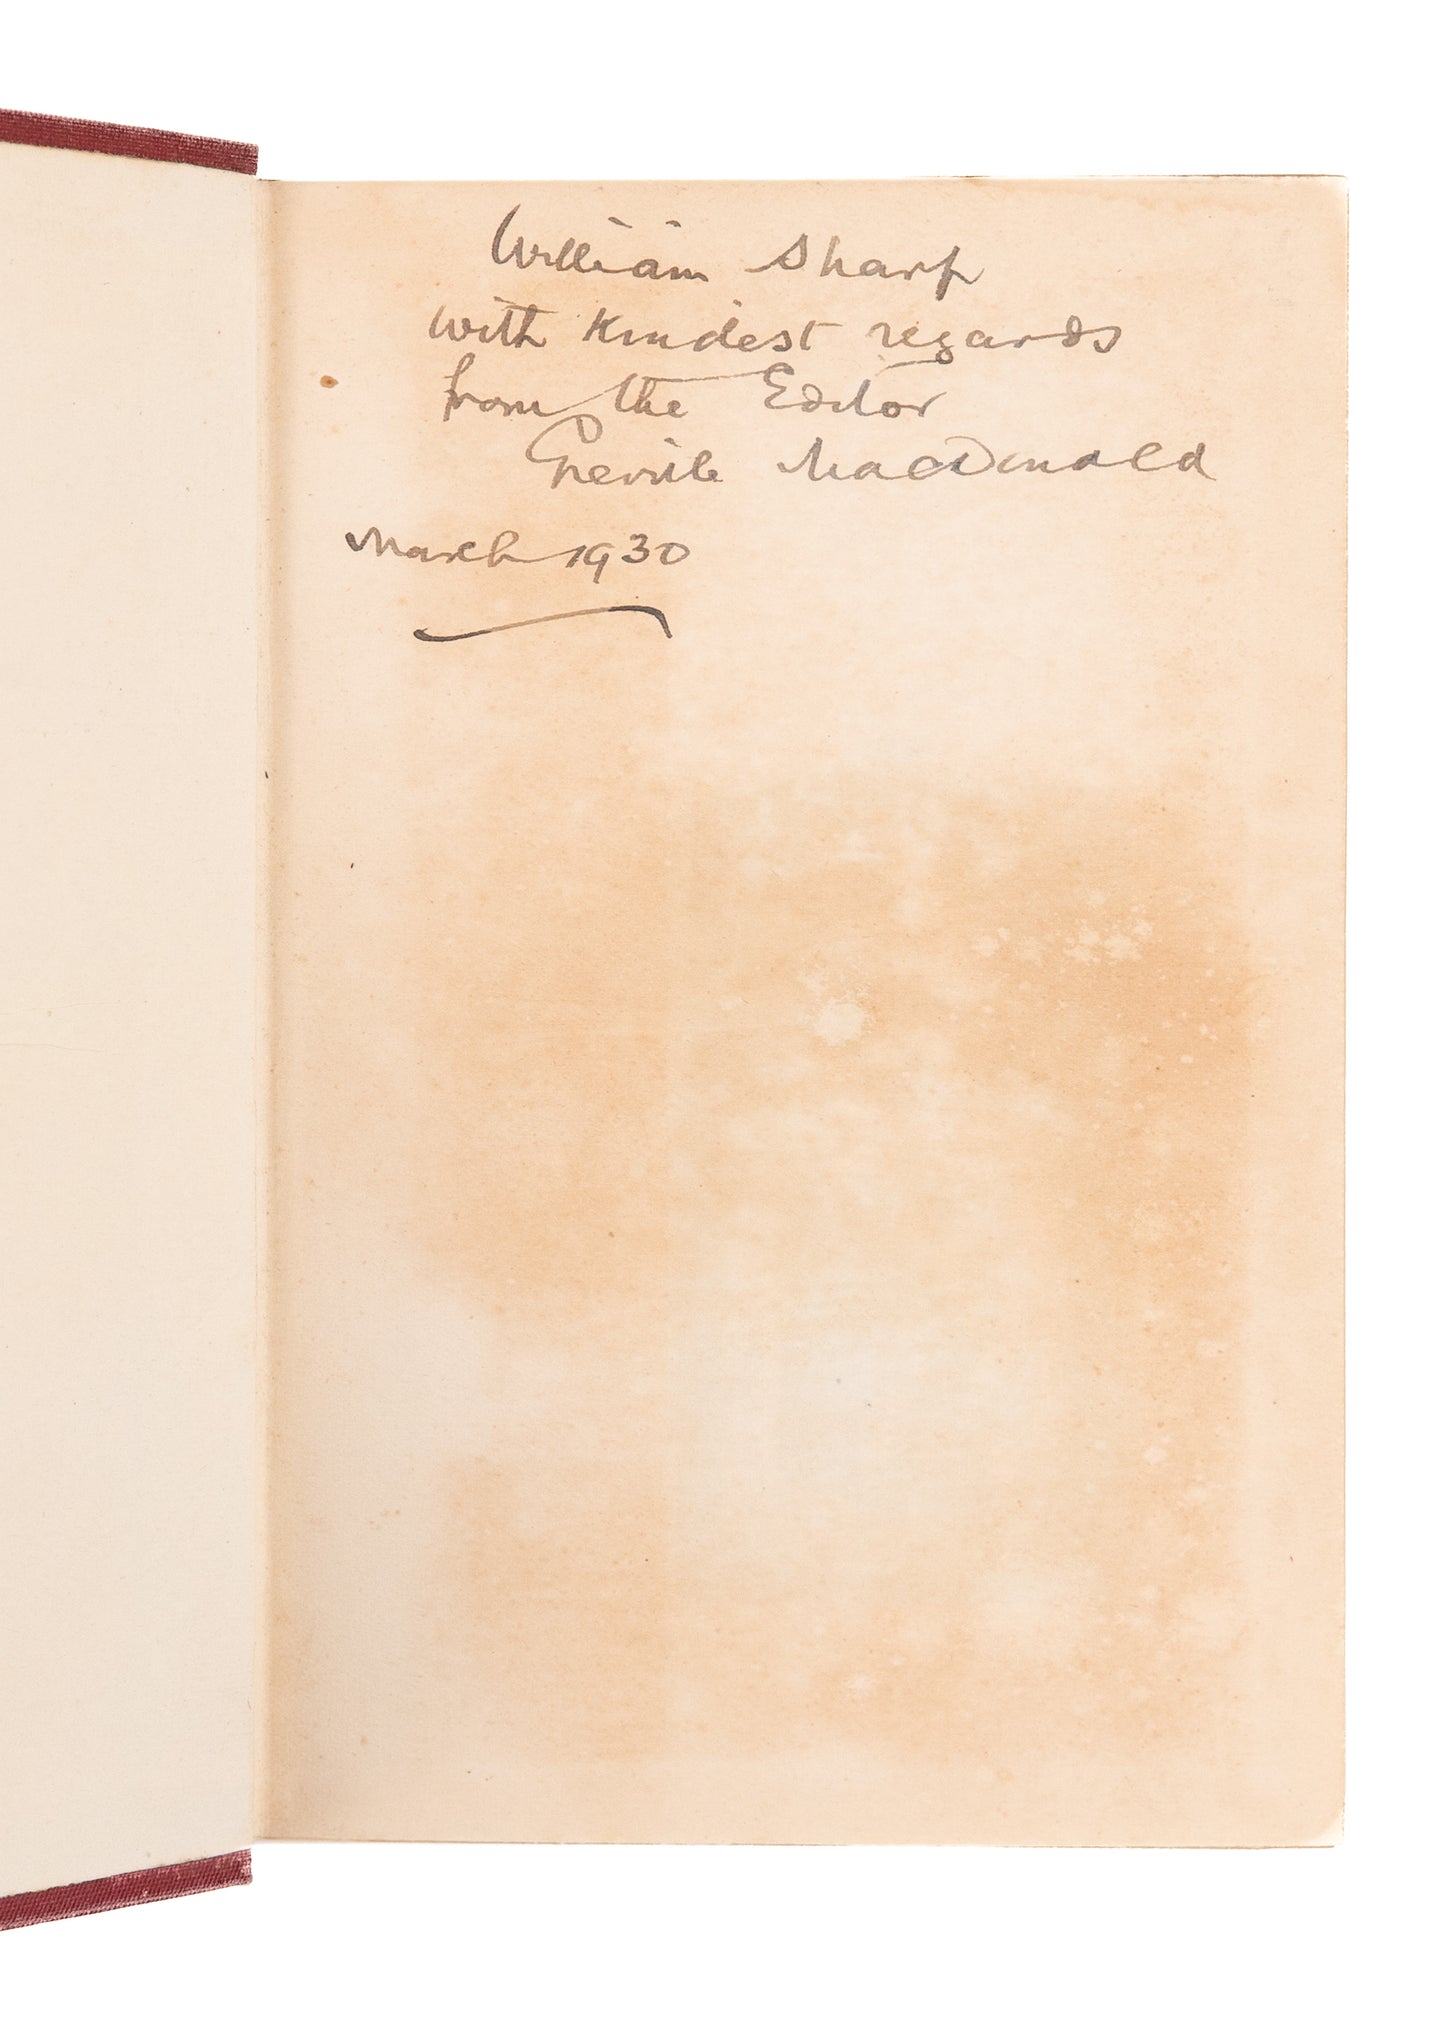 William Sharp
with kindest regards
from the Editor
Greville MacDonald
March 1930